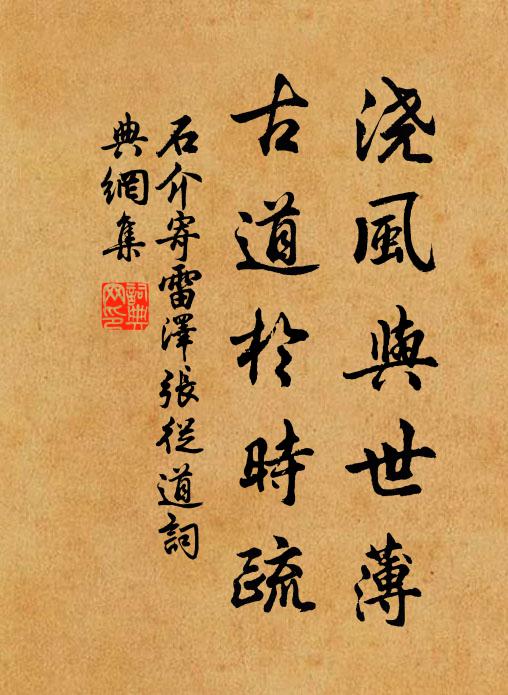 浇風與世薄
古道於時疏
石介寄雷澤張從道詞
典網集
詞典
网印